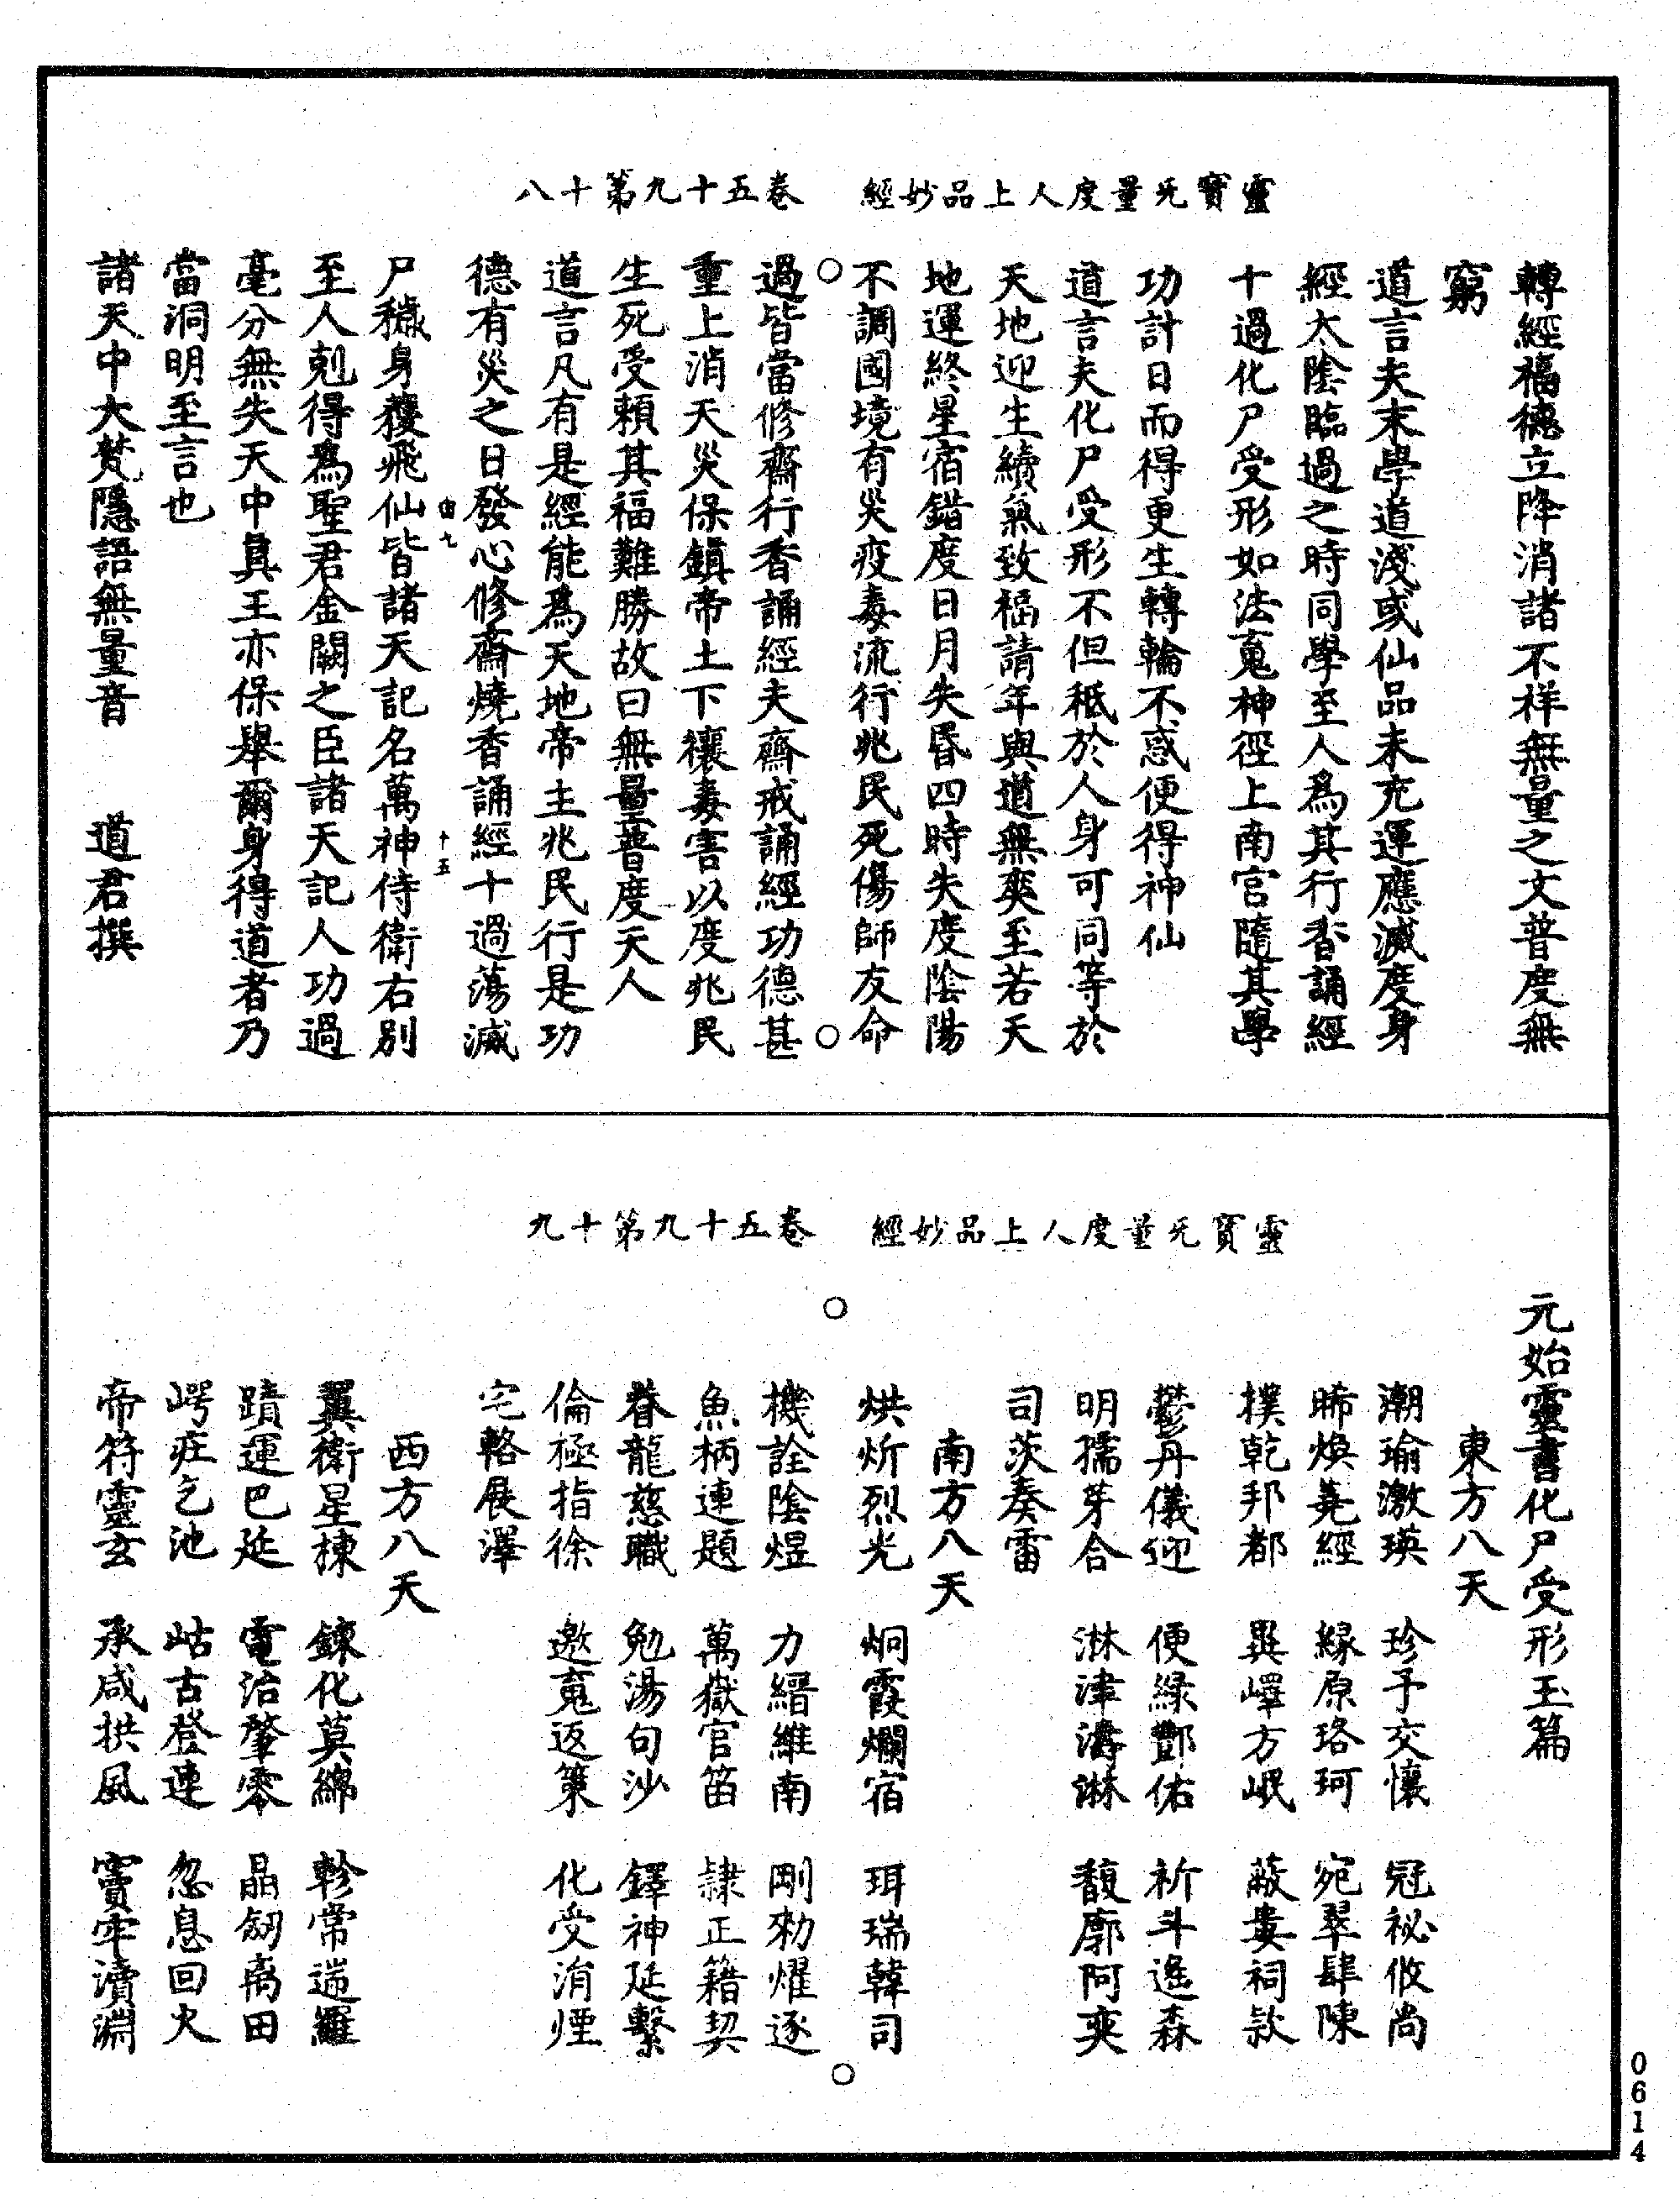 靈寶无量度人上品妙經　卷五十九第十八
轉經福德立降消諸不祥無量之文普度無
窮
道言夫末學道淺或仙品未充運應滅度身
經太陰臨過之時同學至人爲其行香誦經
十過化尸受形如法䰟神徑上南宮隨其學
功計日而得更生轉輪不惑便得神仙
道言夫化尸受形不但秪於人身可同等於
天地迎生續氣致福請年與道無奭至若天
地運終星宿錯度日月失昬四時失度陰陽
不調國境有災疫毒流行兆民死傷師友命
過皆當修齋行香誦經夫齋戒誦經功德甚
重上消天災保鎮帝土下禳毒害以度兆民
生死受賴其福難勝故曰無量普度天人
道言凡有是經能爲天地帝主兆民行是功
德有災之日發心修齋燒香誦經十過蕩滅
由九　十五
尸穢身獲飛仙皆諸天記名萬神侍衛右別
至人剋得爲聖君金闕之臣諸天記人功過
毫分無失天中眞王亦保舉爾身得道者乃
當洞明至言也
諸天中大梵隱語無量音　道君撰
靈寶无量度人上品妙經　卷五十九第十九
元始靈書化尸受形玉篇
東方八天
潮瑜激瑛　珍予交懷　冠祕攸尚
晞煥堯經　緣原珞珂　宛翠肆陳
撲乾邦都　異嶧方岷　蔽婁祠款
鬱丹儀迎　便綠酆佑　祈斗逌森
明孺芽合　淋津濤淋　馥廓阿爽
司茨奏雷
南方八天
烘炘烈光　炯霞爛宿　珥瑞韓司
機詮陰煜　力縉維南　剛勑燿逐
魚柄連題　萬嶽官笛　隷正籍契
眷龍慈職　勉湯句沙　鐸神延繫
倫極指徐　邀䰟返策　化受消煙
宅輅展澤
西方八天
翼衛星棟　鍊化莫綿　軫常遄羅
蹟運巴延　電治肇零　晶劒离田
崿疘乞池　岵古登連　忽息回火
帝符靈玄　承咸拱風　竇牢瀆淵
0614